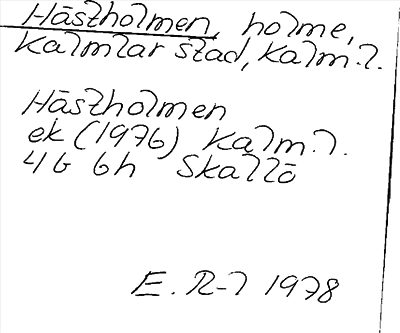 Hästholmen, holme,
Kalmar stad, Kalm. l.
Hästholmen
ek (1976) Kalm. l.
4G 6h Skallö
E. R-l 1978